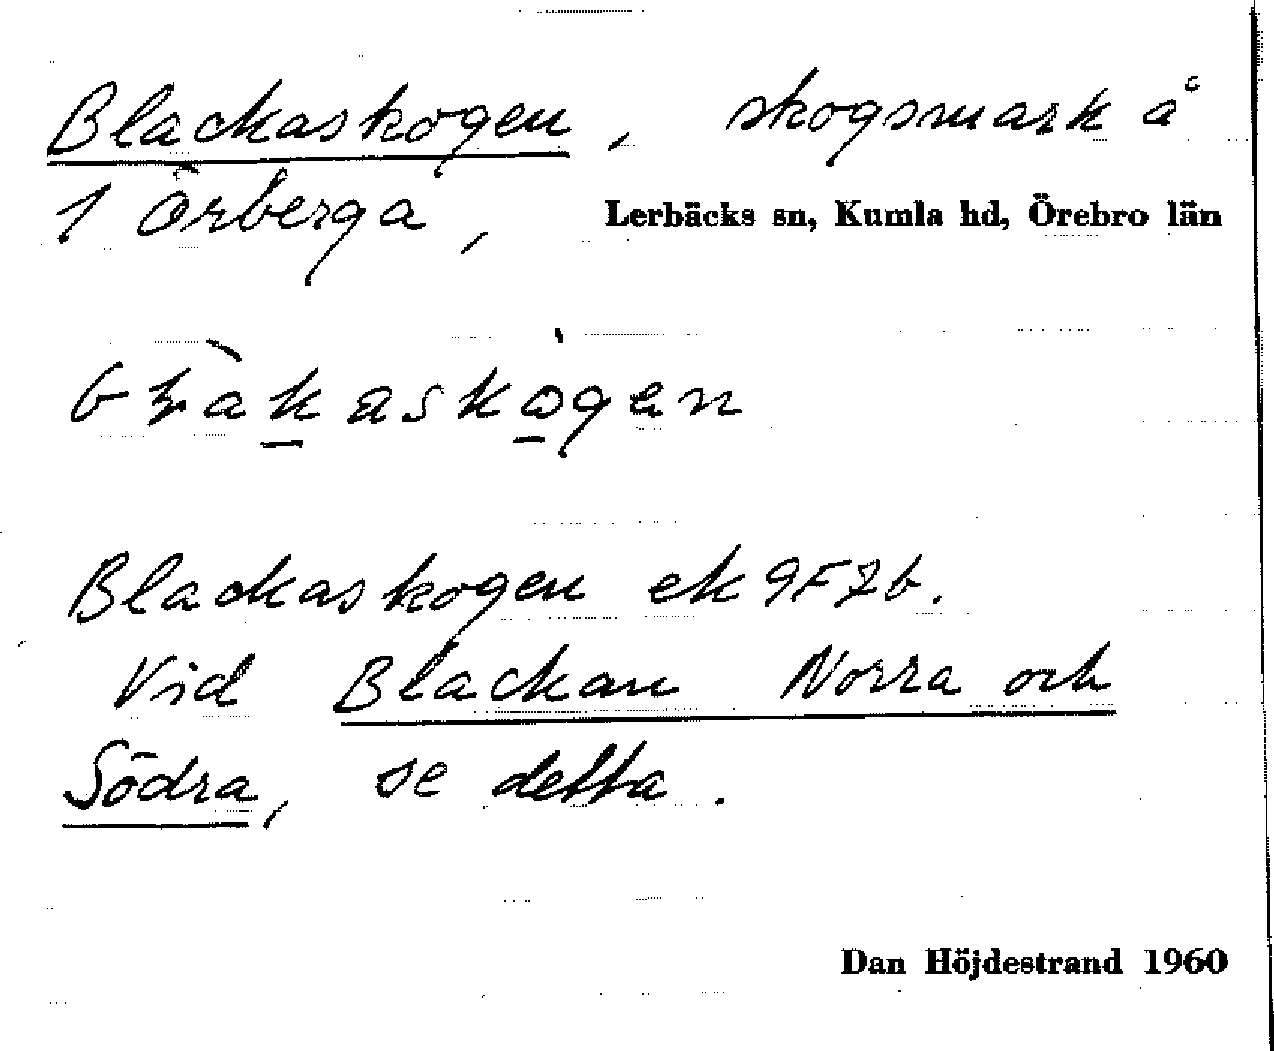 Blackaskogen, skogsmark å
1 Örberga, Lerbäcks sn, Kumla hd, Örebro län
Blackaskogen ek 9F7b.
Vid Blackan Norra och
Södra, se detta.
Dan Höjdestrand 1960